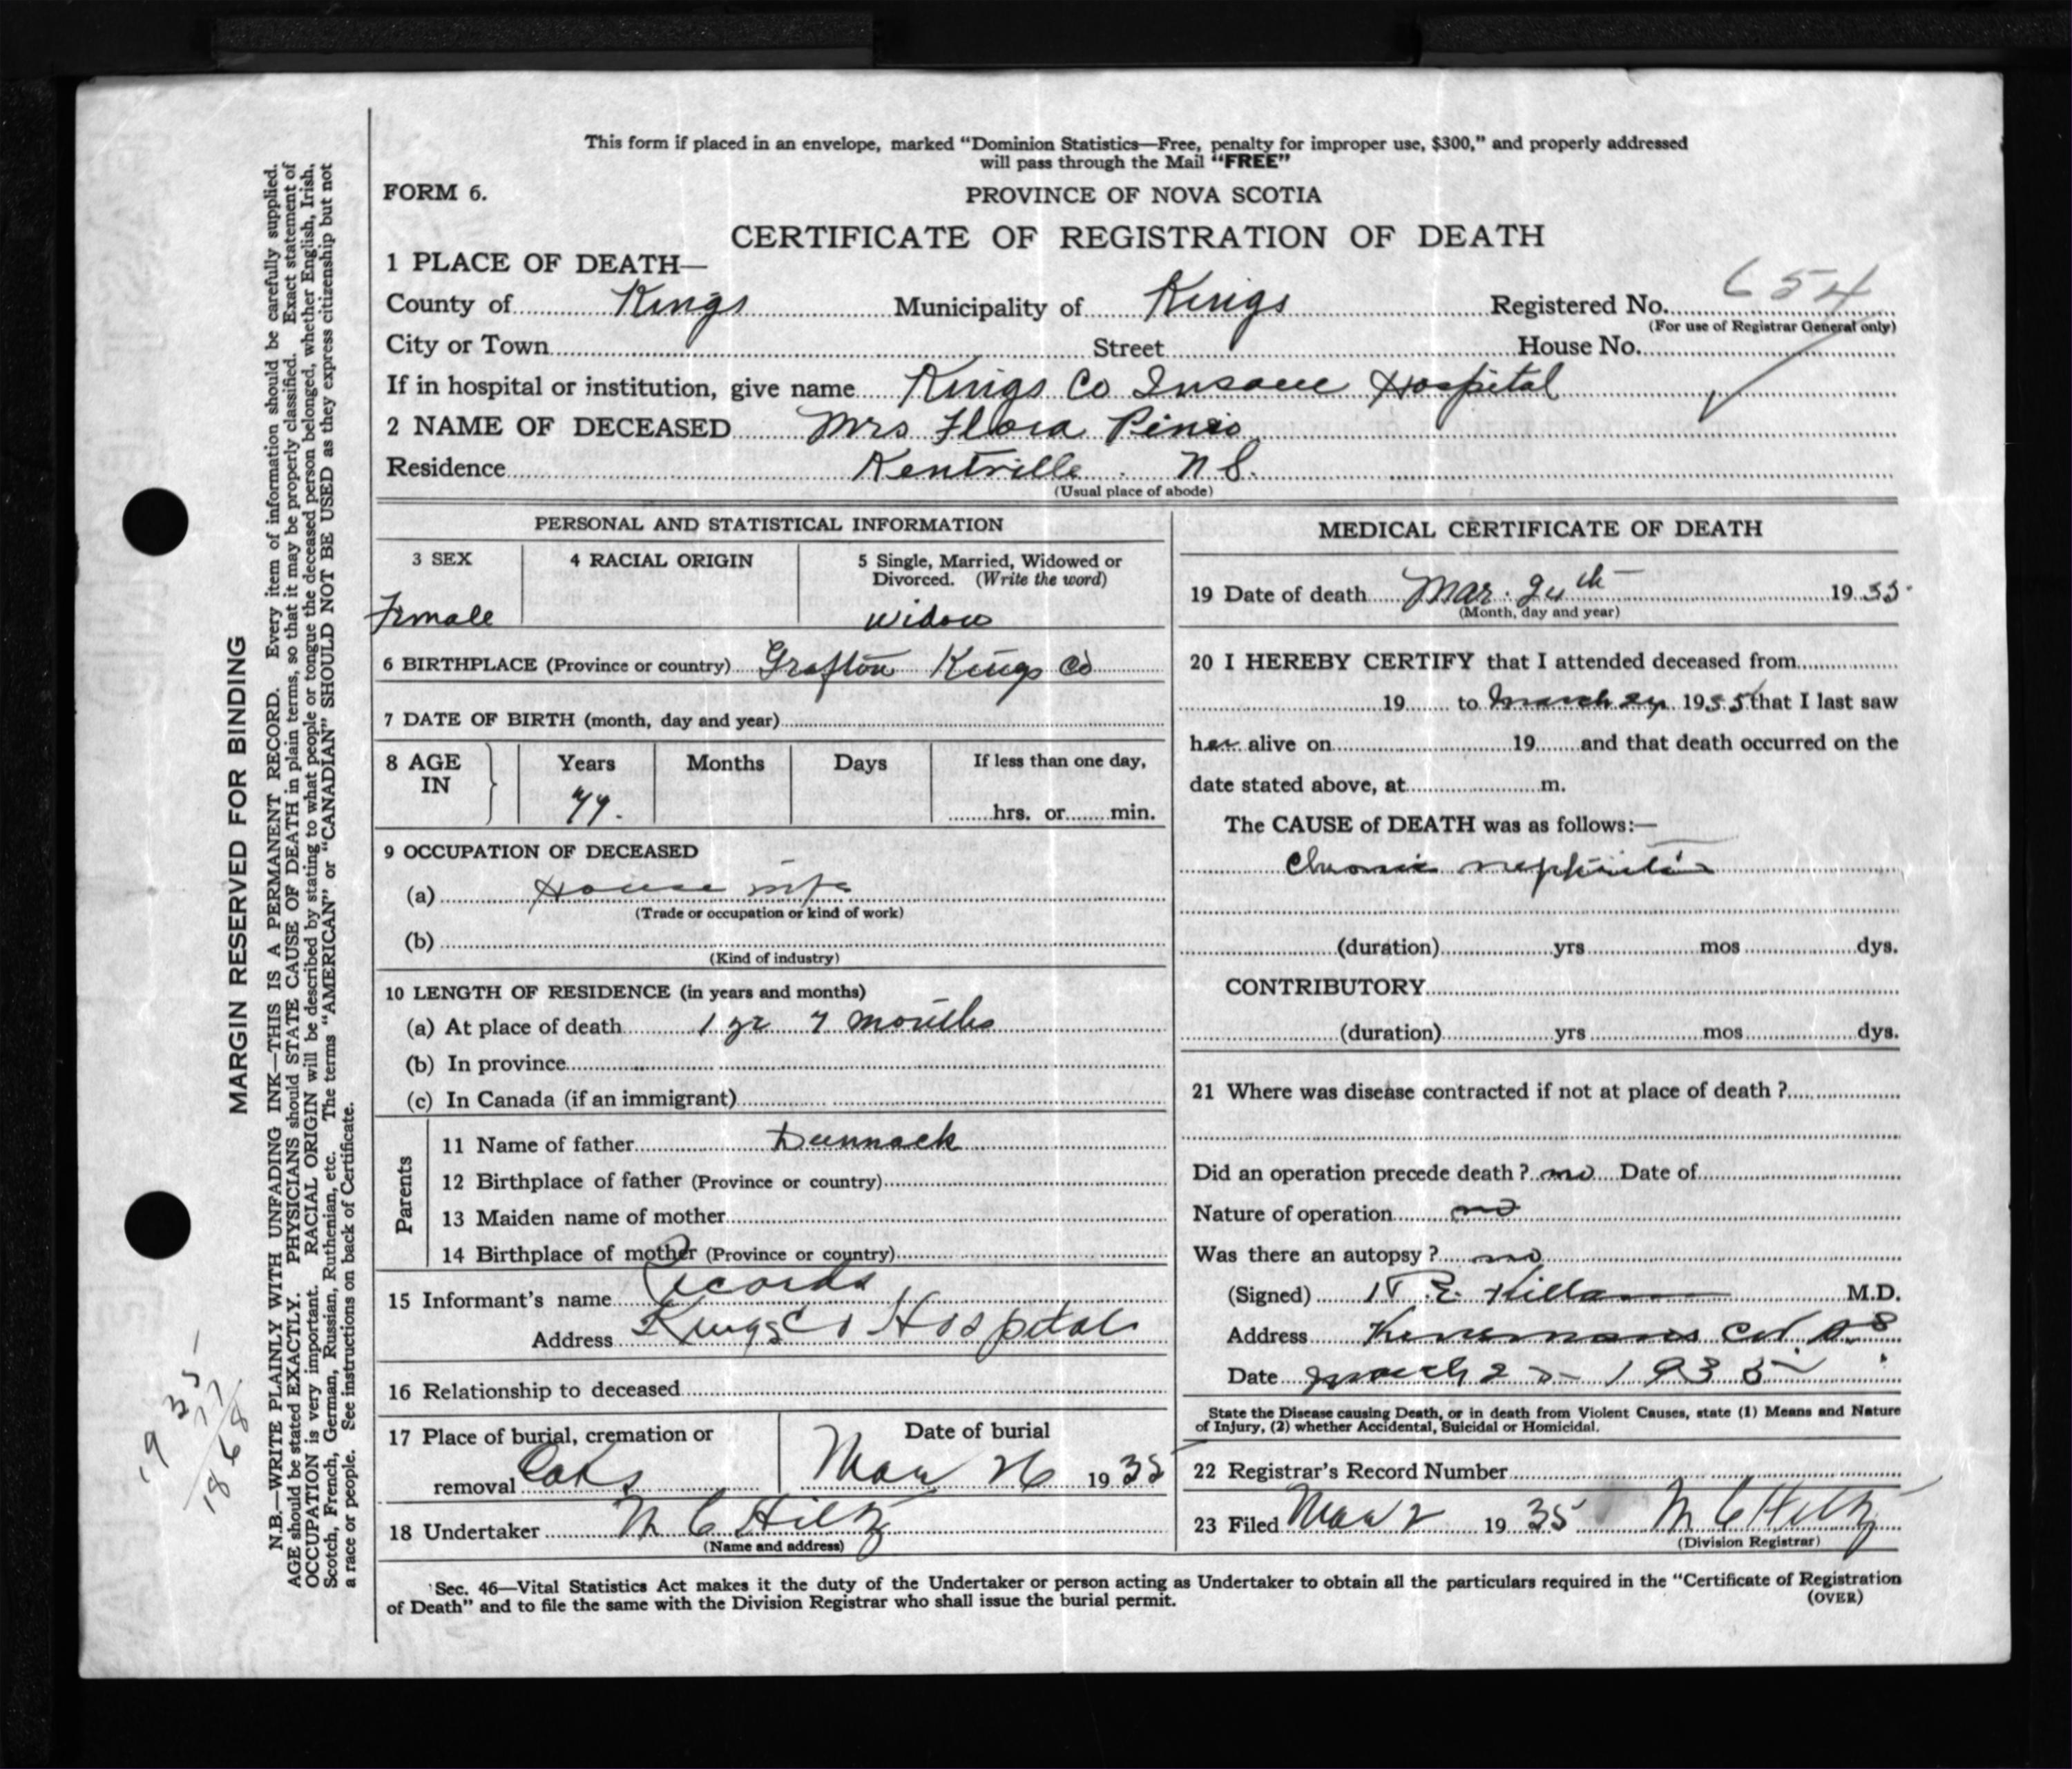 This form if placed in an envelope, marked "Dominion Statistics—Free, penalty for improper use, $300," and properly addressed
will pass through the Mail "FREE"
FORM 6.
PROVINCE OF NOVA SCOTIA
CERTIFICATE OF REGISTRATION OF DEATH
1 PLACE OF DEATH—
County of Kings Municipality of Kings Registered No. 654
(For use of Registrar General only)
City or Town Street House No.
If in hospital or institution, give name Kings Co Insane Hospital
2 NAME OF DECEASED Mrs Flora Pineo
Residence Kentville N S.
(Usual place of abode)
PERSONAL AND STATISTICAL INFORMATION
3 SEX
Female
4 RACIAL ORIGIN
5 Single, Married, Widowed or
Divorced. (Write the word)
Widow
6 BIRTHPLACE (Province or country) Grafton Kings Co
7 DATE OF BIRTH (month, day and year)
8 AGE
IN
Years
77.
Months
Days
If less than one day,
hrs. or min.
9 OCCUPATION OF DECEASED
(a) House wife
(Trade or occupation or kind of work)
(b)
(Kind of industry)
10 LENGTH OF RESIDENCE (in years and months)
(a) At place of death 1 yr 7 months
(b) In province
(c) In Canada (if an immigrant)
Parents
11 Name of father Dunnack
12 Birthplace of father (Province or country)
13 Maiden name of mother
14 Birthplace of mother (Province or country)
15 Informant's name Records
Address Kings Co Hospital
16 Relationship to deceased
17 Place of burial, cremation or
removal Oaks
Date of burial
Mar 26 1935
18 Undertaker M C Hiltz
(Name and address)
MEDICAL CERTIFICATE OF DEATH
19 Date of death Mar. 24th 1935
(Month, day and year)
20 I HEREBY CERTIFY that I attended deceased from
19 to March 24 1935 that I last saw
her alive on 19 and that death occurred on the
date stated above, at m.
The CAUSE of DEATH was as follows:—
Chronic nephritis
(duration) yrs mos dys.
CONTRIBUTORY
(duration) yrs mos dys.
21 Where was disease contracted if not at place of death ?
Did an operation precede death ? no Date of
Nature of operation no
Was there an autopsy ? no
(Signed) M.D.
Address
Date March 25 - 1935
State the Disease causing Death, or in death from Violent Causes, state (1) Means and Nature
of Injury, (2) whether Accidental, Suicidal or Homicidal.
22 Registrar's Record Number
23 Filed Mar 2 1935 M C Hiltz
(Division Registrar)
Sec. 46—Vital Statistics Act makes it the duty of the Undertaker or person acting as Undertaker to obtain all the particulars required in the "Certificate of Registration
of Death" and to file the same with the Division Registrar who shall issue the burial permit.
(OVER)
MARGIN RESERVED FOR BINDING
N.B.—WRITE PLAINLY WITH UNFADING INK—THIS IS A PERMANENT RECORD. Every item of information should be carefully supplied.
AGE should be stated EXACTLY. PHYSICIANS should STATE CAUSE OF DEATH in plain terms, so that it may be properly classified. Exact statement of
OCCUPATION is very important. RACIAL ORIGIN will be described by stating to what people or tongue the deceased person belonged, whether English, Irish,
Scotch, French, German, Russian, Ruthenian, etc. The terms "AMERICAN" or "CANADIAN" SHOULD NOT BE USED as they express citizenship but not
a race or people. See instructions on back of Certificate.
1935
77
1868